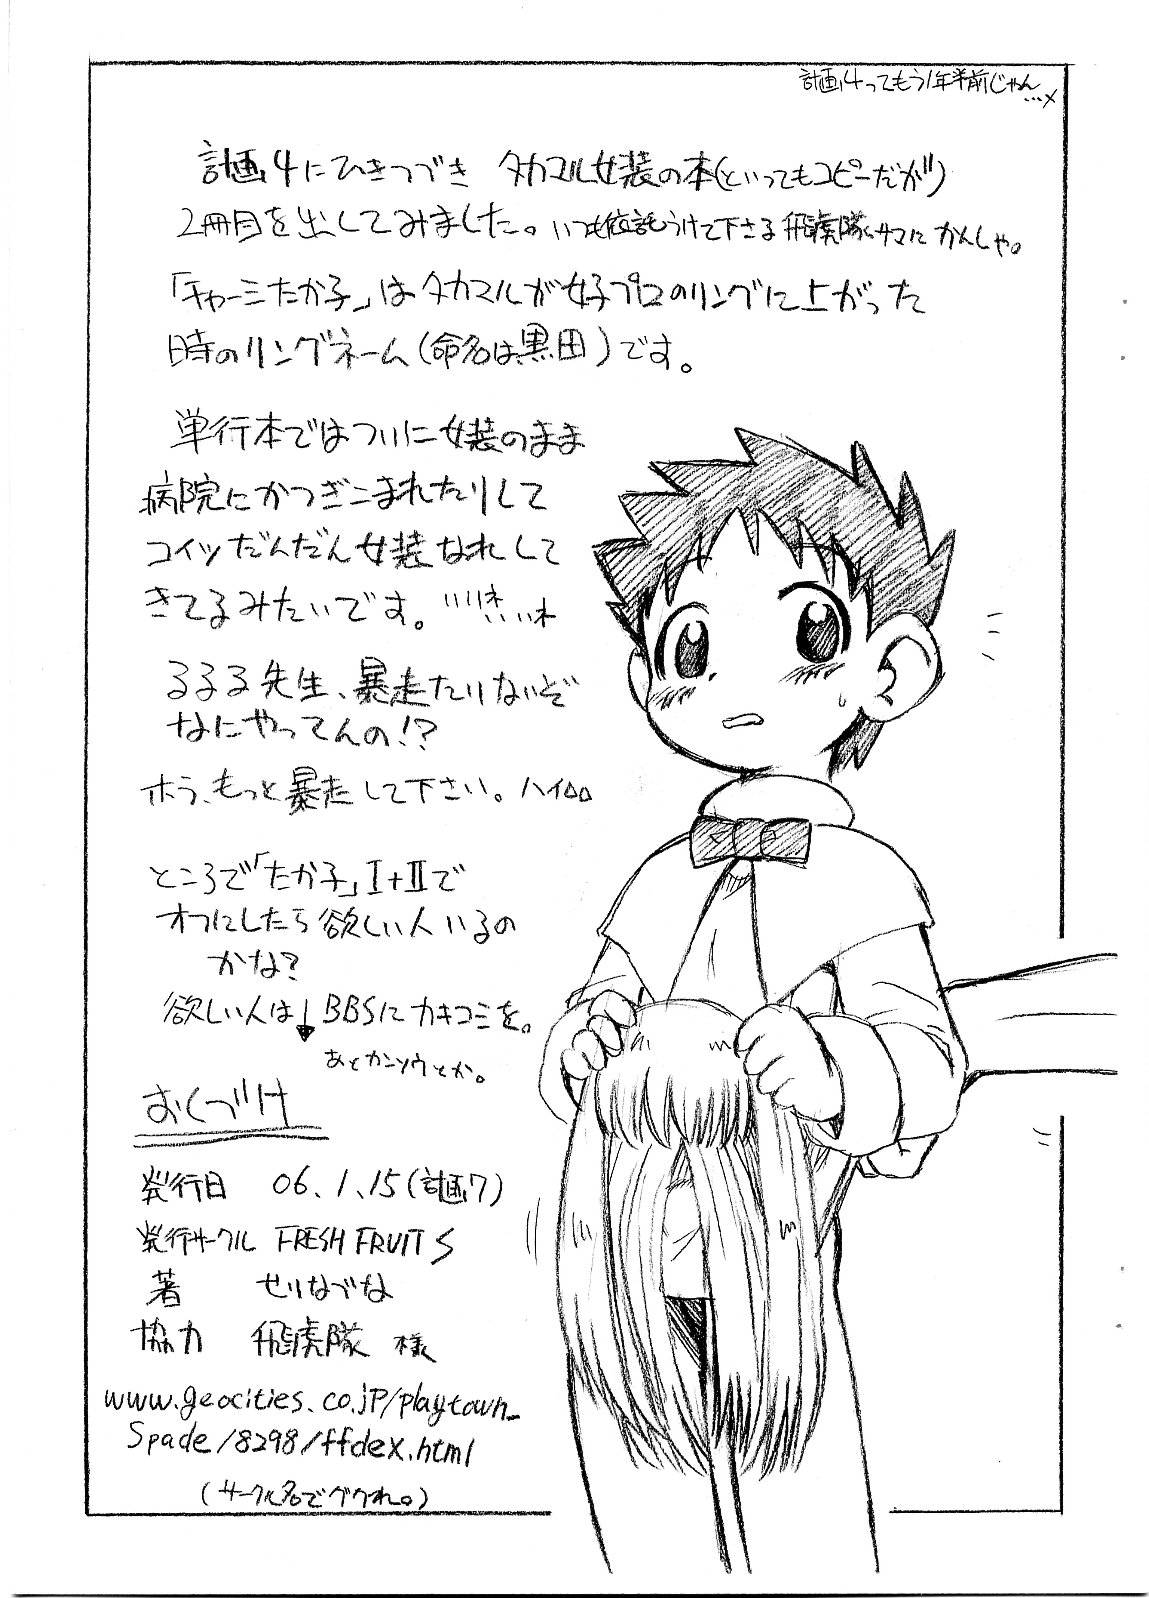 計画4ってもう1年半前じゃん
…×
計画4にひきつづき タカマル女装の本(といってもコピーだが)
2冊目を出してみました。いつも委託うけて下さる飛虎隊サマに かんしゃ。
「チャーミたか子」はタカマルが女子プロのリングに上がった
時のリングネーム(命名は黒田)です。
単行本ではついに女装のまま
病院にかつぎこまれたりして
コイツだんだん女装なれして
きてるみたいです。
るるる先生、暴走たりないぞ
なにやってんの!?
ホラ、もっと暴走して下さい。ハイ
ところで「たか子」I+IIで
オフにしたら欲しい人いるの
かな?
欲しい人は↓BBSにカキコミを。
あとカンソウとか。
おくづけ
発行日 06.1.15(計画7)
発行サークル FRESH FRUITS
著 せりなずな
協力 飛虎隊 様
www.geocities.co.jp/playtown_
Spade/8298/ffdex.html
(サークル名でググれ。)